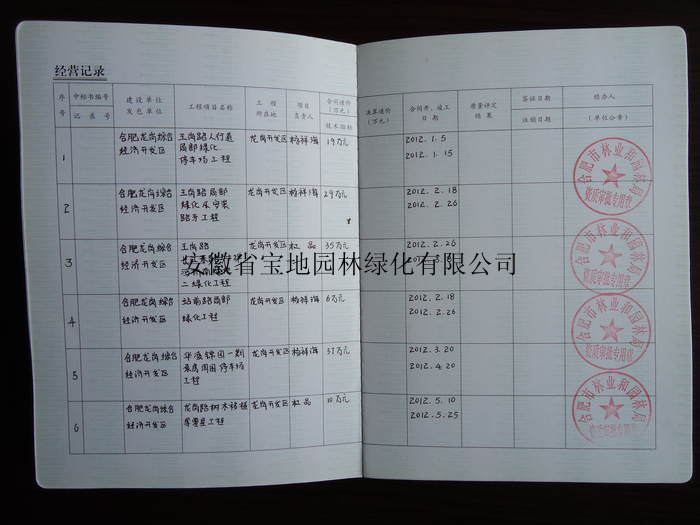 经营记录
序号 中标书编号 记 录 号 建设单位 发包单位 工程项目名称 工程所在地 项目负责人 合同造价(万元) 技术指标 决算造价(万元) 合同开、竣工日期 质量评定结果 签证日期 注销日期 经办人 (单位公章)
1 合肥龙岗综合经济开发区 王岗路人行道局部绿化、停车场工程 龙岗开发区 杨祥海 19万元 2012.1.5 2012.1.15
2 合肥龙岗综合经济开发区 王岗路局部绿化及安装路牙工程 龙岗开发区 杨祥海 29万元 2012.2.18 2012.2.26
3 合肥龙岗综合经济开发区 王岗路 二绿化工程 龙岗开发区 杜品 35万元 2012.2.26
安徽省宝地园林绿化有限公司
4 合肥龙岗综合经济开发区 站前路局部绿化工程 龙岗开发区 杨祥海 6万元 2012.2.18 2012.2.26
5 合肥龙岗综合经济开发区 停车场工程 龙岗开发区 杨祥海 37万元 2012.3.20 2012.4.20
6 合肥龙岗综合经济开发区 龙岗路树木移植等零星工程 龙岗开发区 杜品 10万元 2012.5.10 2012.5.25
合肥市林业和园林局
资质审批专用章
合肥市林业和园林局
资质审批专用章
合肥市林业和园林局
资质审批专用章
合肥市林业和园林局
资质审批专用章